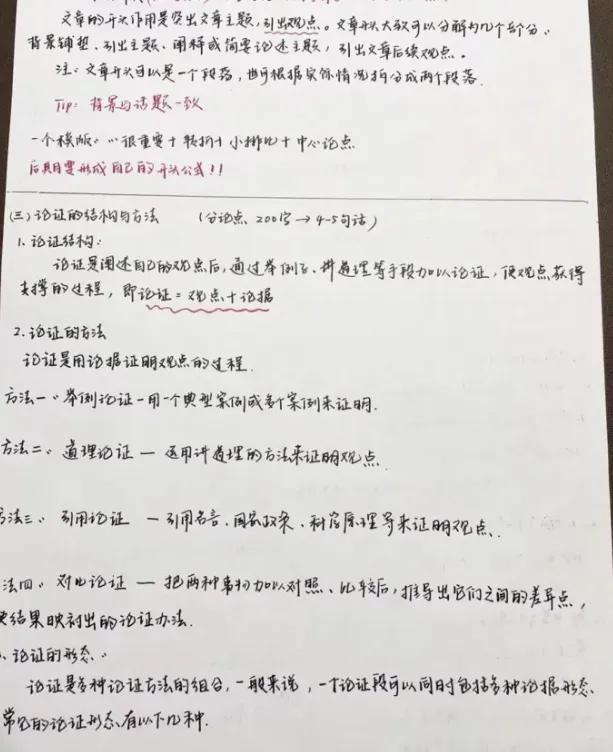 文章的开头作用是突出文章主题,引出观点。文章开头大致可以分解为几个部分。
背景铺垫、引出主题、阐释或简要论述主题,引出文章后续观点。
注:文章开头可以是一个段落,也可根据实际情况拆分成两个段落.
Tip: 背景与话题一致
一个模版:…很重要+转折+小排比+中心论点
后期要形成自己的开头公式!!
(三)论证的结构与方法 (分论点、200字→4-5句话)
1.论证结构:
论证是阐述自己的观点后,通过举例子、讲道理等手段加以论证,使观点获得
支撑的过程,即论证=观点+论据
2.论证的方法
论证是用论据证明观点的过程.
方法一:举例论证—用一个典型案例或多个案例来证明.
方法二:道理论证—运用讲道理的方法来证明观点
方法三:引用论证—引用名言、国家政策、科学原理等来证明观点.
法四:对比论证—把两种事物加以对照、比较后,推导出它们之间的差异点,
结果映衬出的论证办法.
、论证的形态:
论证是多种论证方法的组合,一般来说,一个论证段可以同时包括多种论据形态.
常见的论证形态有以下几种.